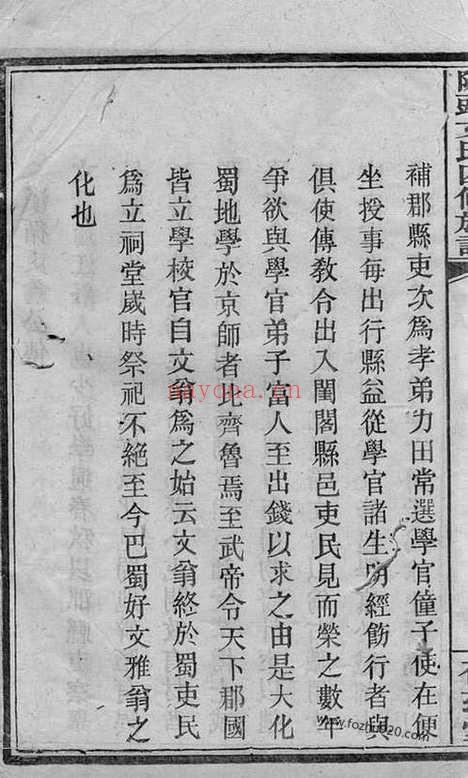 補郡縣吏次爲孝弟力田常選學官僮子使在便
坐授事每出行縣益從學官諸生明經飭行者與
俱使傳敎令出入閨閣縣邑吏民見而榮之數年
爭欲與學官弟子富人至出錢以求之由是大化
蜀地學於京師者比齊魯焉至武帝令天下郡國
皆立學校官自文翁爲之始云文翁終於蜀吏民
爲立祠堂歲時祭祀不絕至今巴蜀好文雅翁之
化也
nayona.cn
www.fozhu920.com